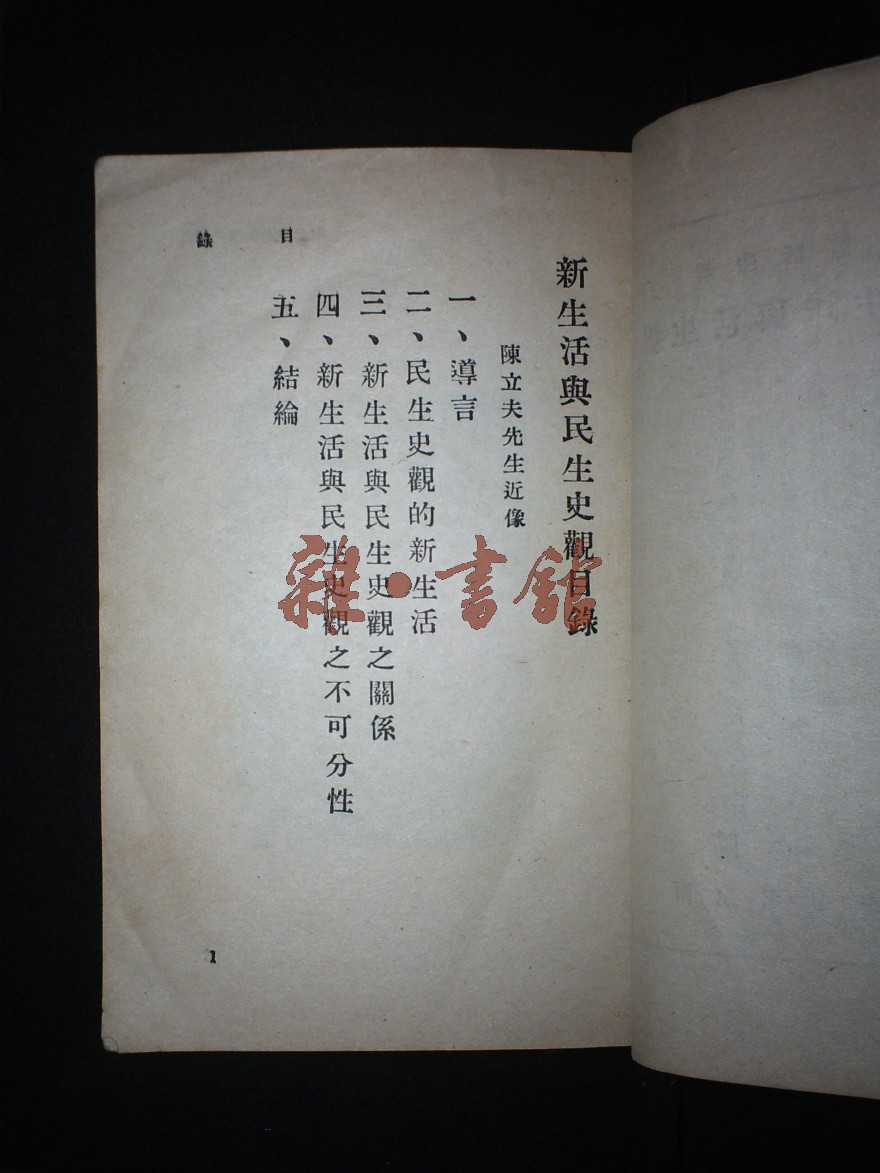 新生活與民生史觀目錄
陳立夫先生近像
一、導言
二、民生史觀的新生活
三、新生活與民生史觀之關係
四、新生活與民生史觀之不可分性
五、結綸
目錄
1
雜·書館